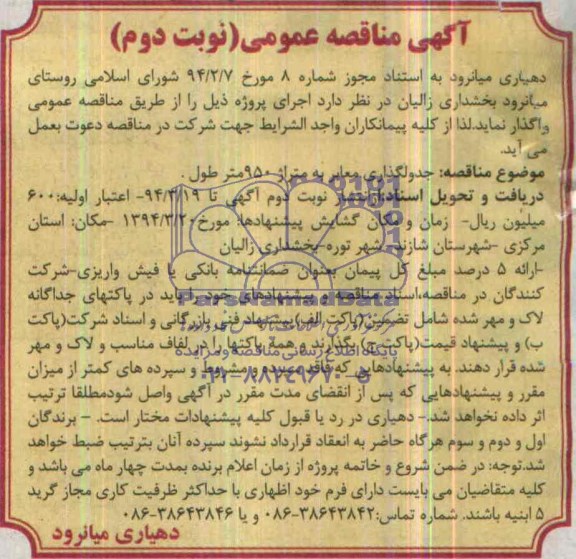 آگهی مناقصه عمومی(نوبت دوم)
دهیاری میانرود به استناد مجوز شماره ۸ مورخ ۹۴/۲/۷ شورای اسلامی روستای
میانرود بخشداری زالیان در نظر دارد اجرای پروژه ذیل را از طریق مناقصه عمومی
واگذار نماید.لذا از کلیه پیمانکاران واجد الشرایط جهت شرکت در مناقصه دعوت بعمل
می آید.
موضوع مناقصه: جدولگذاری معابر به متراژ ۹۵۰متر طول .
دریافت و تحویل اسناد:ازنشر نوبت دوم آگهی تا ۹۴/۳/۱۹- اعتبار اولیه:۶۰۰
میلیون ریال- زمان و مکان گشایش پیشنهادها: مورخ ۱۳۹۴/۳/۲۰ -مکان: استان
مرکزی -شهرستان شازند- شهر توره-بخشداری زالیان
-ارائه ۵ درصد مبلغ کل پیمان بعنوان ضمانتنامه بانکی یا فیش واریزی-شرکت
کنندگان در مناقصه،اسناد مناقصه و پیشنهادهای خود را باید در پاکتهای جداگانه
لاک و مهر شده شامل تضمین(پاکت الف)پیشنهاد فنی بازرگانی و اسناد شرکت(پاکت
ب) و پیشنهاد قیمت(پاکت ج) بگذارند و همه پاکتها را در لفاف مناسب و لاک و مهر
شده قرار دهند. به پیشنهادهایی که فاقد سپرده و مشروط و سپرده های کمتر از میزان
مقرر و پیشنهادهایی که پس از انقضای مدت مقرر در آگهی واصل شودمطلقا ترتیب
اثر داده نخواهد شد.- دهیاری در رد یا قبول کلیه پیشنهادات مختار است. - برندگان
اول و دوم و سوم هرگاه حاضر به انعقاد قرارداد نشوند سپرده آنان بترتیب ضبط خواهد
شد.توجه: در ضمن شروع و خاتمه پروژه از زمان اعلام برنده بمدت چهار ماه می باشد و
کلیه متقاضیان می بایست دارای فرم خود اظهاری با حداکثر ظرفیت کاری مجاز گرید
۵ ابنیه باشند. شماره تماس:۳۸۶۴۳۸۴۲-۰۸۶ و یا ۳۸۶۴۳۸۴۶-۰۸۶
دهیاری میانرود
ParsNamadData
پایگاه اطلاع رسانی مناقصه و مزایده
۰۲۱-۸۸۳۴۹۶۷۰